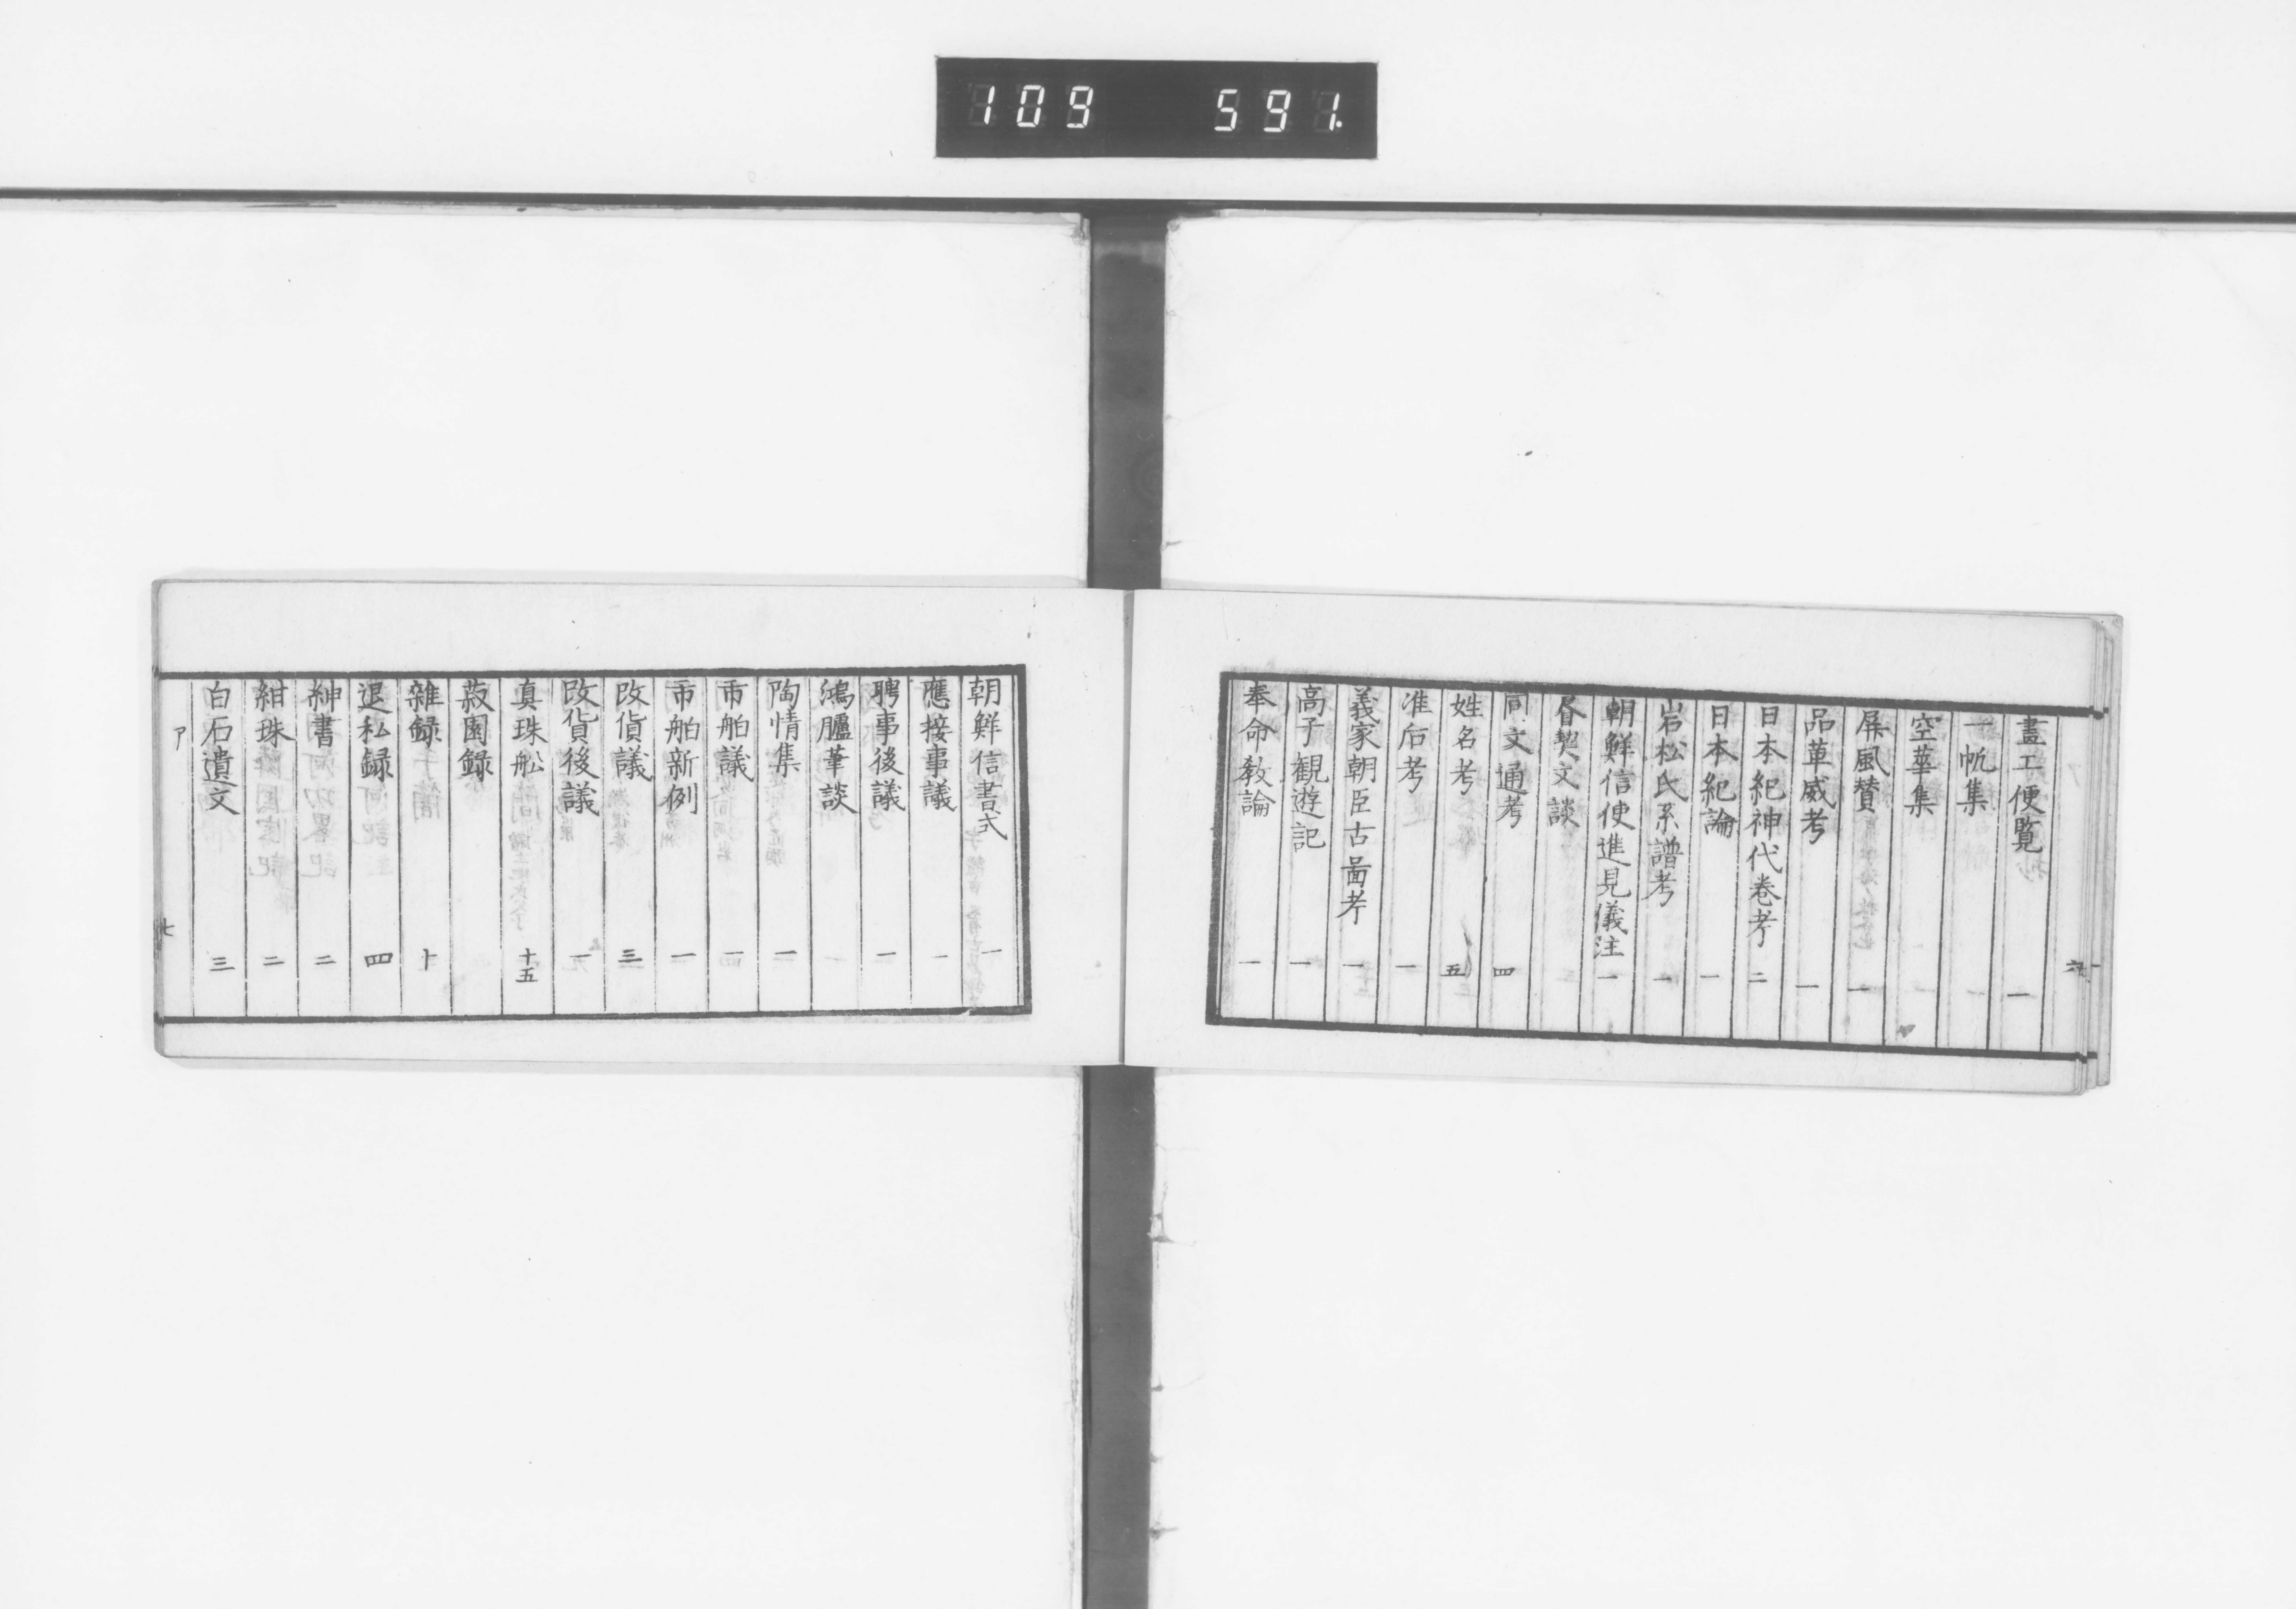 109 591
畫工便覧 一
一帆集 一
空華集 一
屏風賛 一
品革威考 一
日本紀神代巻考 二
日本紀論 一
岩松氏系譜考 一
朝鮮信使進見儀注 一
昝契文談
同文通考 四
姓名考 五
准后考 一
義家朝臣古啚考 一
高子観遊記 一
奉命教諭 一
六
朝鮮信書式 一
應接事議 一
聘事後議 一
鴻臚筆談
陶情集 一
市舶議 一
市舶新例 一
改貨議 三
改貨後議 一
真珠舩 十五
菽園録
雜録 十
退私録 四
紳書 二
紺珠 二
白石遺文 三
ア
七